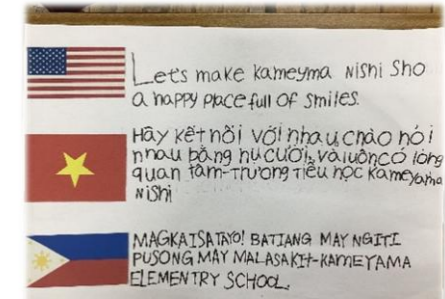 Let's make kameyma Nishi Sho
a happy place full of smiles.
Hãy kết nối với nhau, chào hỏi
nhau bằng nụ cười, và luôn có lòng
quan tâm-Trương Tiểu học Kameyama
Nishi
MAGKAISA TAYO! BATIANG MAY NGITI
PUSONG MAY MALASAKIT-KAMEYAMA
ELEMENTRY SCHOOL.